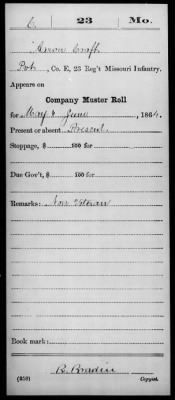 C | 23 | Mo.
Aaron Craft
Pvt, Co. E, 23 Reg't Missouri Infantry.
Appears on
Company Muster Roll
for May & June, 1864.
Present or absent Present
Stoppage, $ 100 for
Due Gov't, $ 100 for
Remarks: Non Veteran
Book mark:
(858) Copyist.